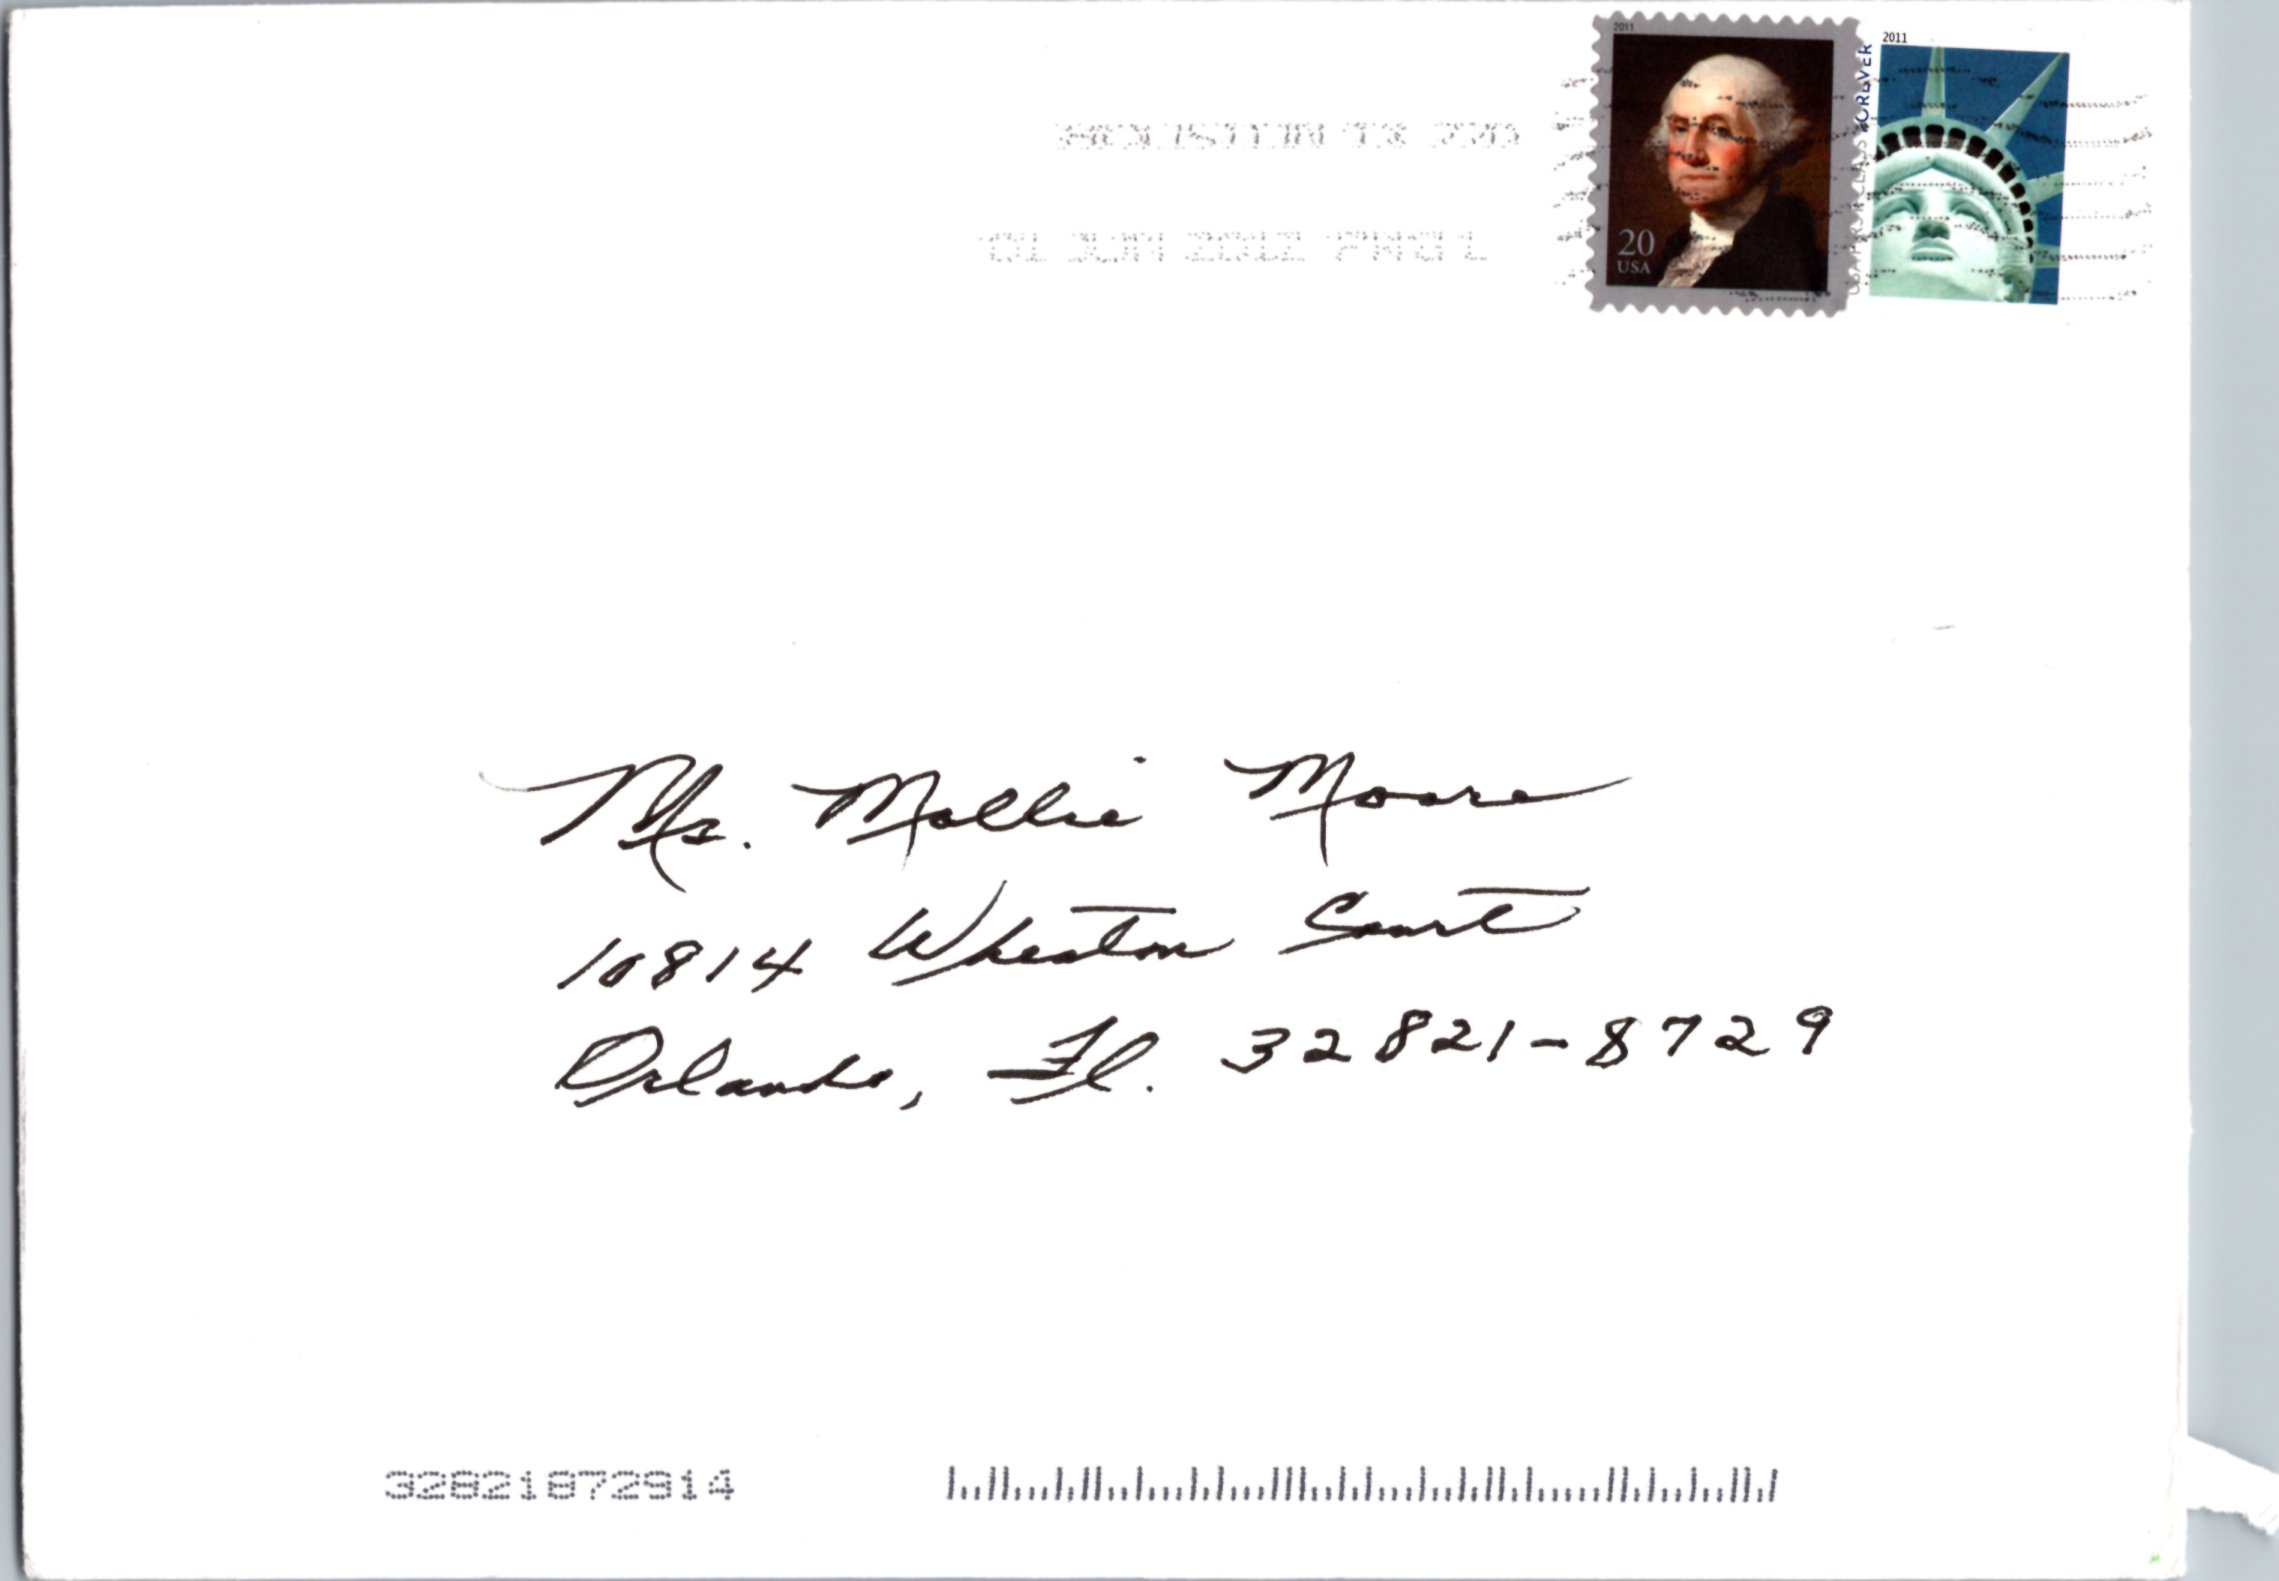 2011
20
USA
2011
FOREVER
HOUSTON TX 770
01 JUN 2012 PM 3 L
Ms. Mollie Moore
10814 Wheaton Court
Orlando, Fl. 32821-8729
32821872914